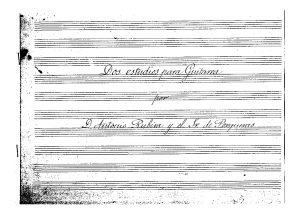 Dos estudios para Guitarra
por
D. Antonio Rubira y el Sr. de